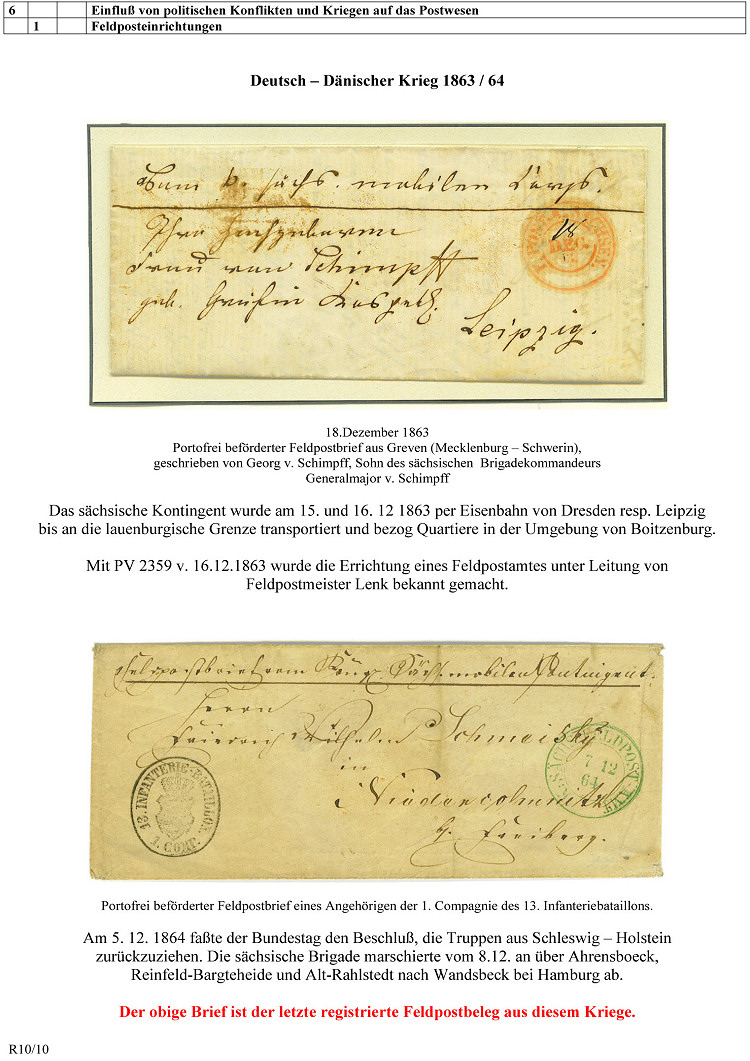 6 Einfluß von politischen Konflikten und Kriegen auf das Postwesen
1 Feldposteinrichtungen
Deutsch – Dänischer Krieg 1863 / 64
Vom k. sächs. mobilen Corps.
18
DEC.
Frau von Schimpff
geb. Gräfin
Leipzig.
18.Dezember 1863
Portofrei beförderter Feldpostbrief aus Greven (Mecklenburg – Schwerin),
geschrieben von Georg v. Schimpff, Sohn des sächsischen Brigadekommandeurs
Generalmajor v. Schimpff
Das sächsische Kontingent wurde am 15. und 16. 12 1863 per Eisenbahn von Dresden resp. Leipzig
bis an die lauenburgische Grenze transportiert und bezog Quartiere in der Umgebung von Boitzenburg.
Mit PV 2359 v. 16.12.1863 wurde die Errichtung eines Feldpostamtes unter Leitung von
Feldpostmeister Lenk bekannt gemacht.
Feldpostbrief vom Königl. Sächs. mobilen Contingent.
Herrn
Friedrich Wilhelm Schmaisky
in
b. Freiberg.
K. SÄCHS. FELDPOST AMT
7 12
64
13. INFANTERIE-BATAILLON.
1. COMP.
Portofrei beförderter Feldpostbrief eines Angehörigen der 1. Compagnie des 13. Infanteriebataillons.
Am 5. 12. 1864 faßte der Bundestag den Beschluß, die Truppen aus Schleswig – Holstein
zurückzuziehen. Die sächsische Brigade marschierte vom 8.12. an über Ahrensboeck,
Reinfeld-Bargteheide und Alt-Rahlstedt nach Wandsbeck bei Hamburg ab.
Der obige Brief ist der letzte registrierte Feldpostbeleg aus diesem Kriege.
R10/10